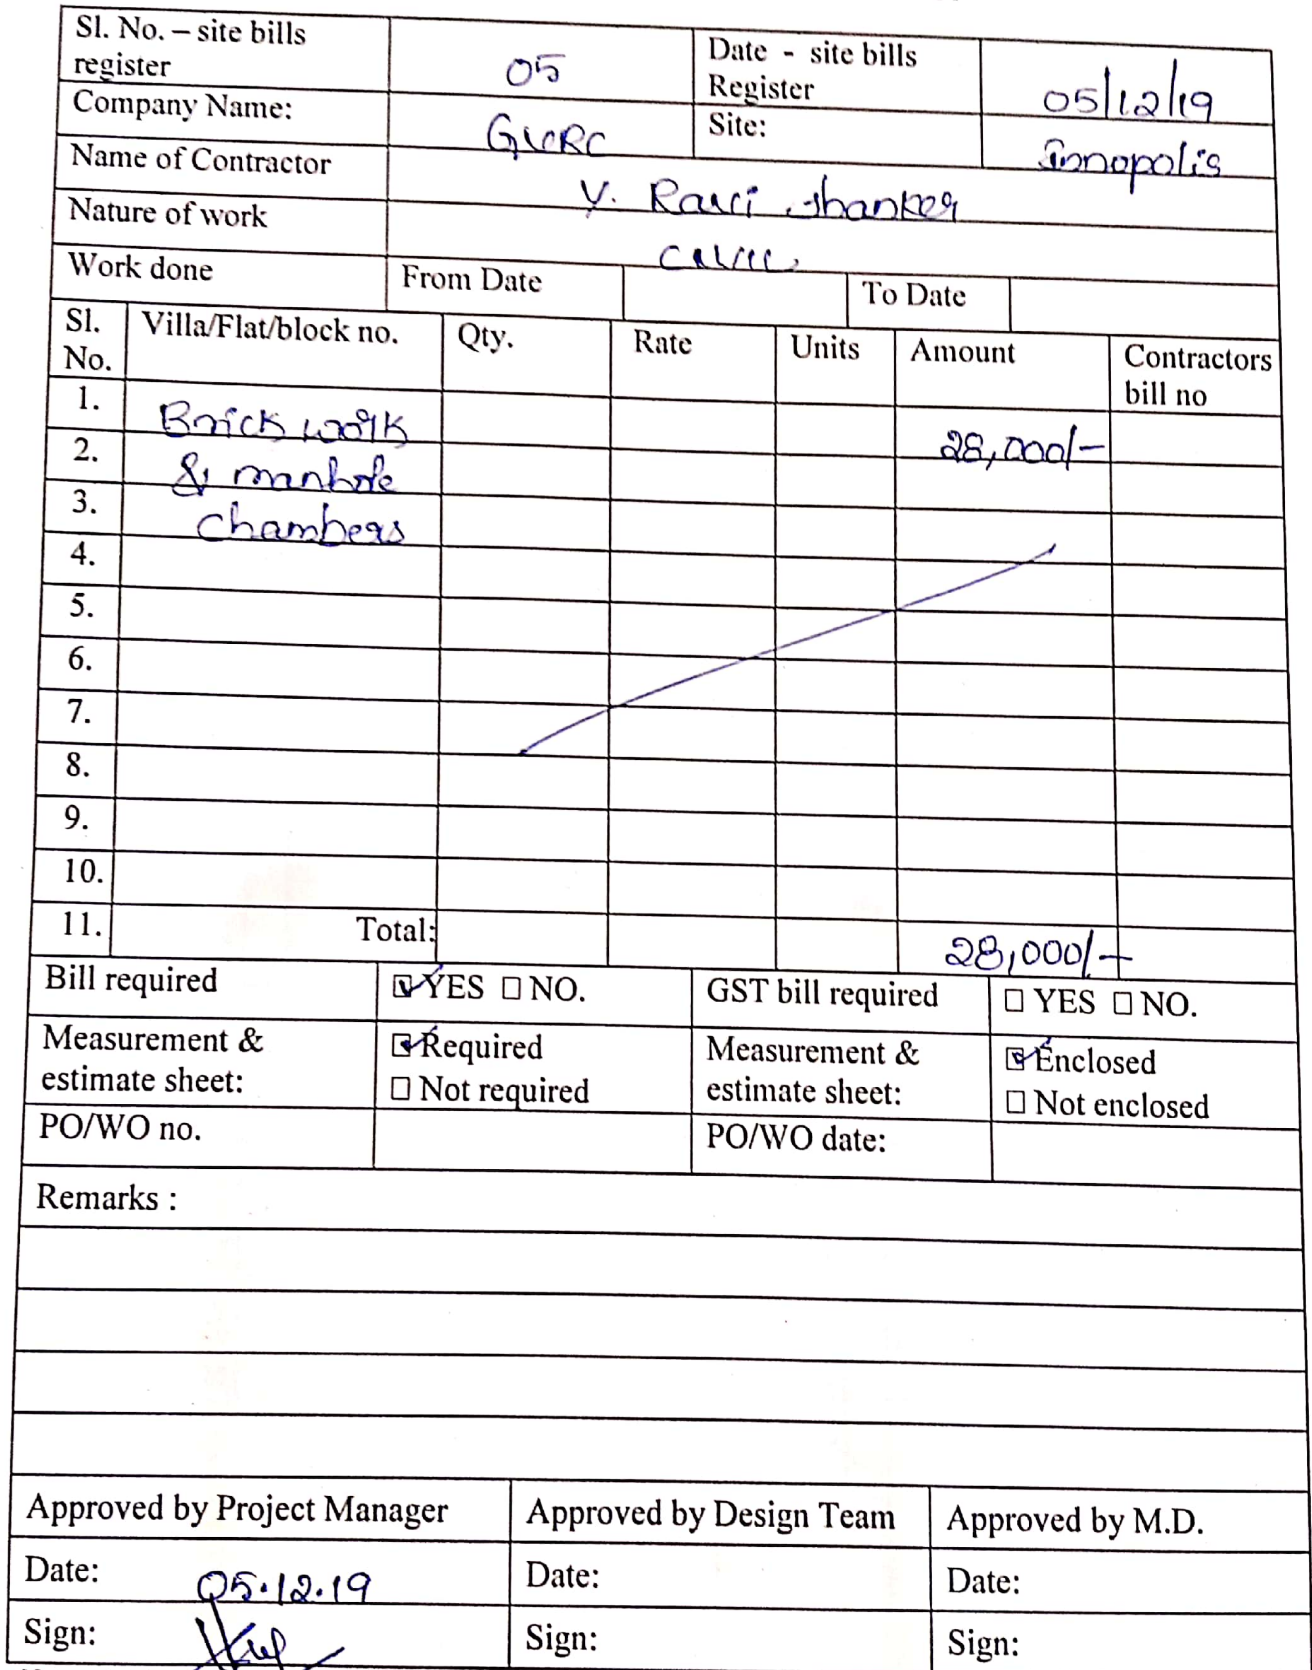 Sl. No. – site bills register 05 Date - site bills Register 05/12/19
Company Name: GVRC Site: Innopolis
Name of Contractor V. Ravi Shanker
Nature of work civil
Work done From Date To Date
Sl. No. Villa/Flat/block no. Qty. Rate Units Amount Contractors bill no
1. Brick work 28,000/-
2. & manhole
3. chambers
4.
5.
6.
7.
8.
9.
10.
11. Total: 28,000/-
Bill required ☑ YES ☐ NO. GST bill required ☐ YES ☐ NO.
Measurement & estimate sheet: ☑ Required ☐ Not required Measurement & estimate sheet: ☑ Enclosed ☐ Not enclosed
PO/WO no. PO/WO date:
Remarks :
Approved by Project Manager Approved by Design Team Approved by M.D.
Date: 05.12.19 Date: Date:
Sign: Sign: Sign: